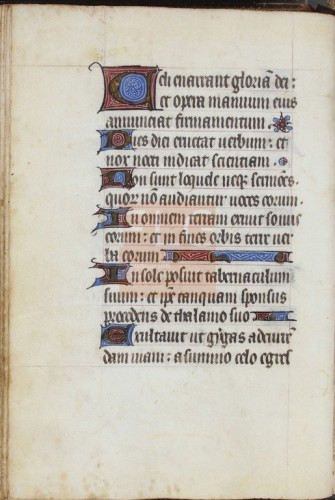 Celi enarrant gloriā dei:
et opera manuum eius
annunciat firmamentum.
Dies diei eructat verbum: et
nox nocti indicat scientiam.
Non sunt loquele neqꝫ sermões.
quorꝝ nō audiantur voces eorum.
In omnem terram exivit sonus
eorum: et in fines orbis terre ver
ba eorum
In sole posuit tabernaculum
suum: et ipē tanquam sponsus
procedens de thalamo suo
Exultavit ut gygas ad currē
dam viam: a summo celo egres